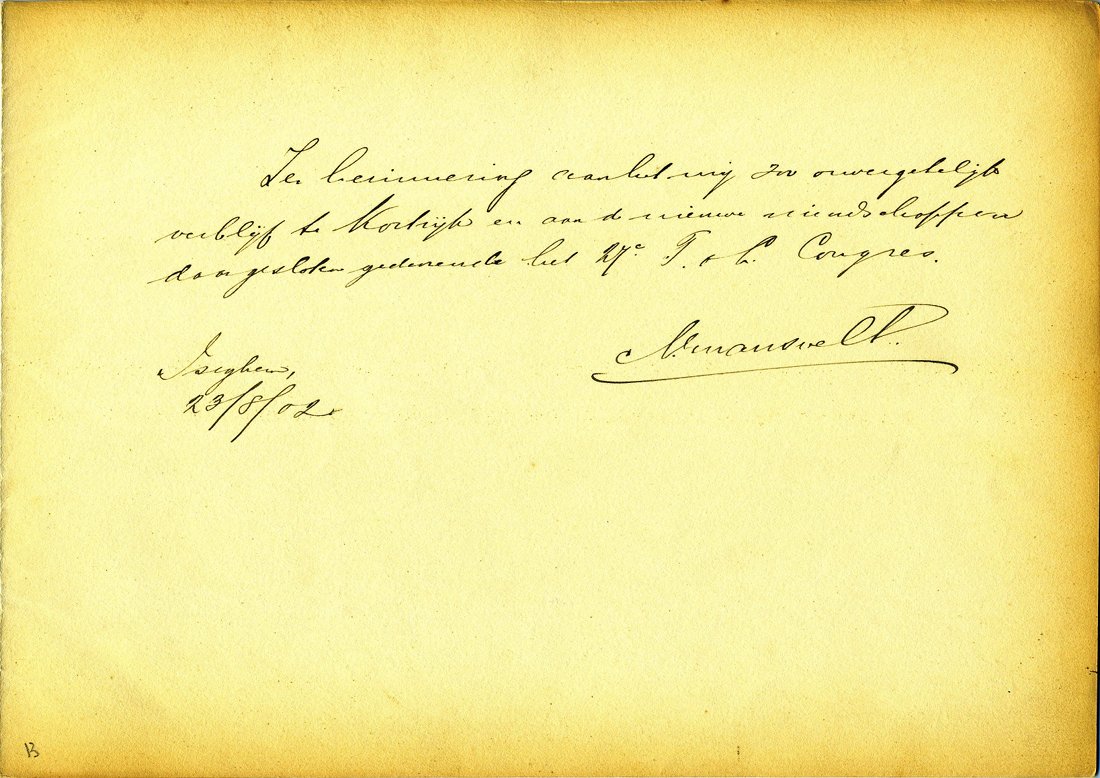 Ter herinnering aan het mij zoo onvergetelijk
verblijf te Kortrijk en aan de nieuwe vriendschappen
daar gesloten gedurende het 27e T. & L. Congres.
N. Mansvelt.
Iseghem,
23/8/02.
B